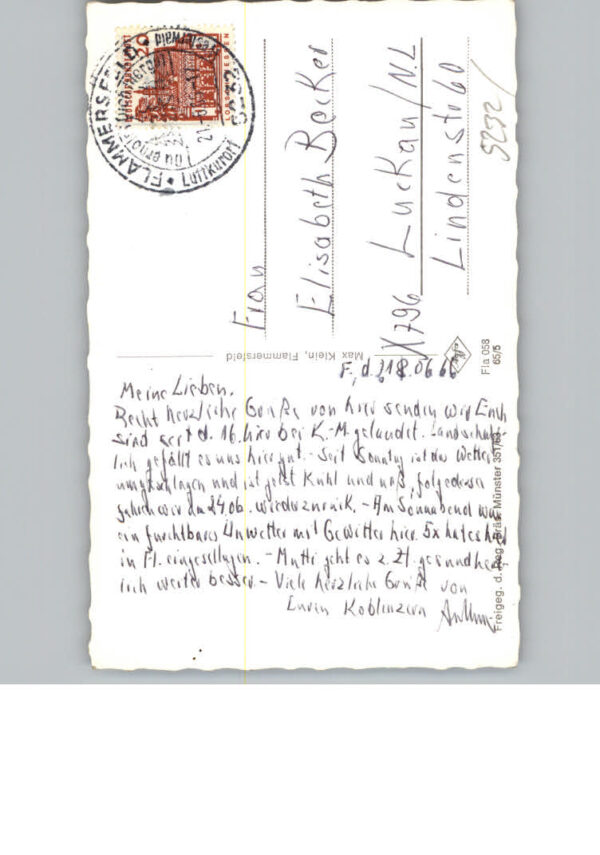 FLAMMERSFELD
5232
Luftkurort
Westerwald
20
Frau
Elisabeth Becker
X796 Luckau/N.L.
Lindenstr. 60
5232
Max Klein, Flammersfeld
Fla 058
65/5
Freigeg. d. Reg. Präs. Münster
F, d. 18.06.66
Meine Lieben.
Recht herzliche Grüße von hier senden wir Euch
sind seit d. 16. hier bei K.-M. gelandet. Landschaft-
lich gefällt es uns hier gut. - Seit Sonntag ist das Wetter
umgeschlagen und ist jetzt Kühl und naß, folgedessen
fahren wir am 24.06. wieder zurück. - Am Sonnabend war
ein furchtbares Unwetter mit Gewitter hier. 5x hat es hier
in Fl. eingeschlagen. - Mutti geht es z. Zt. gesundheit-
lich weiter besser. - Viele herzliche Grüße von
Euren Koblenzern